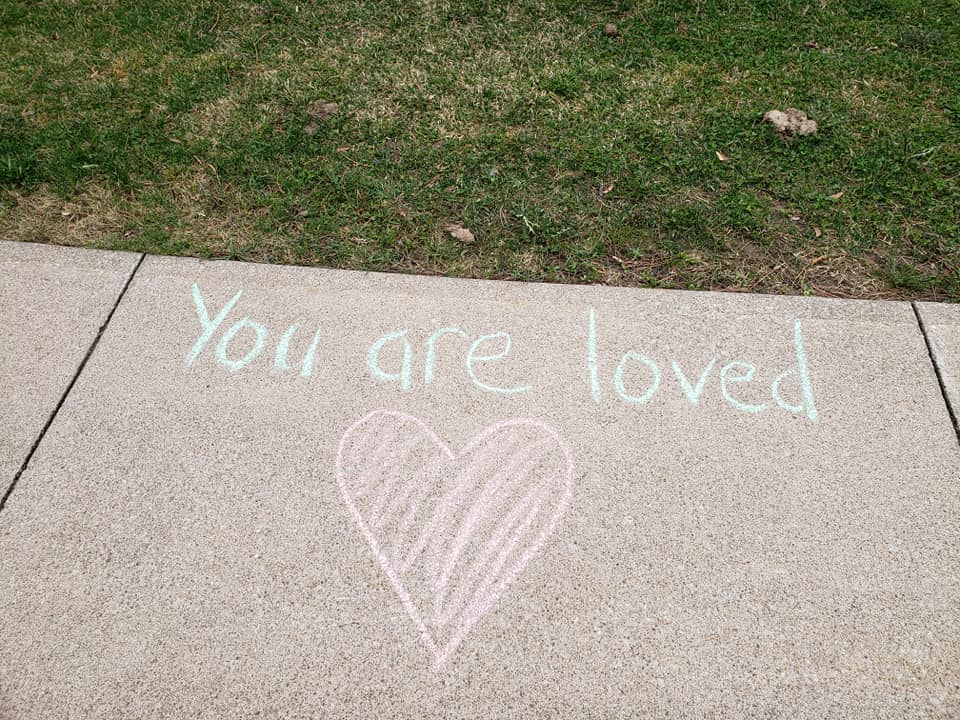 You are loved